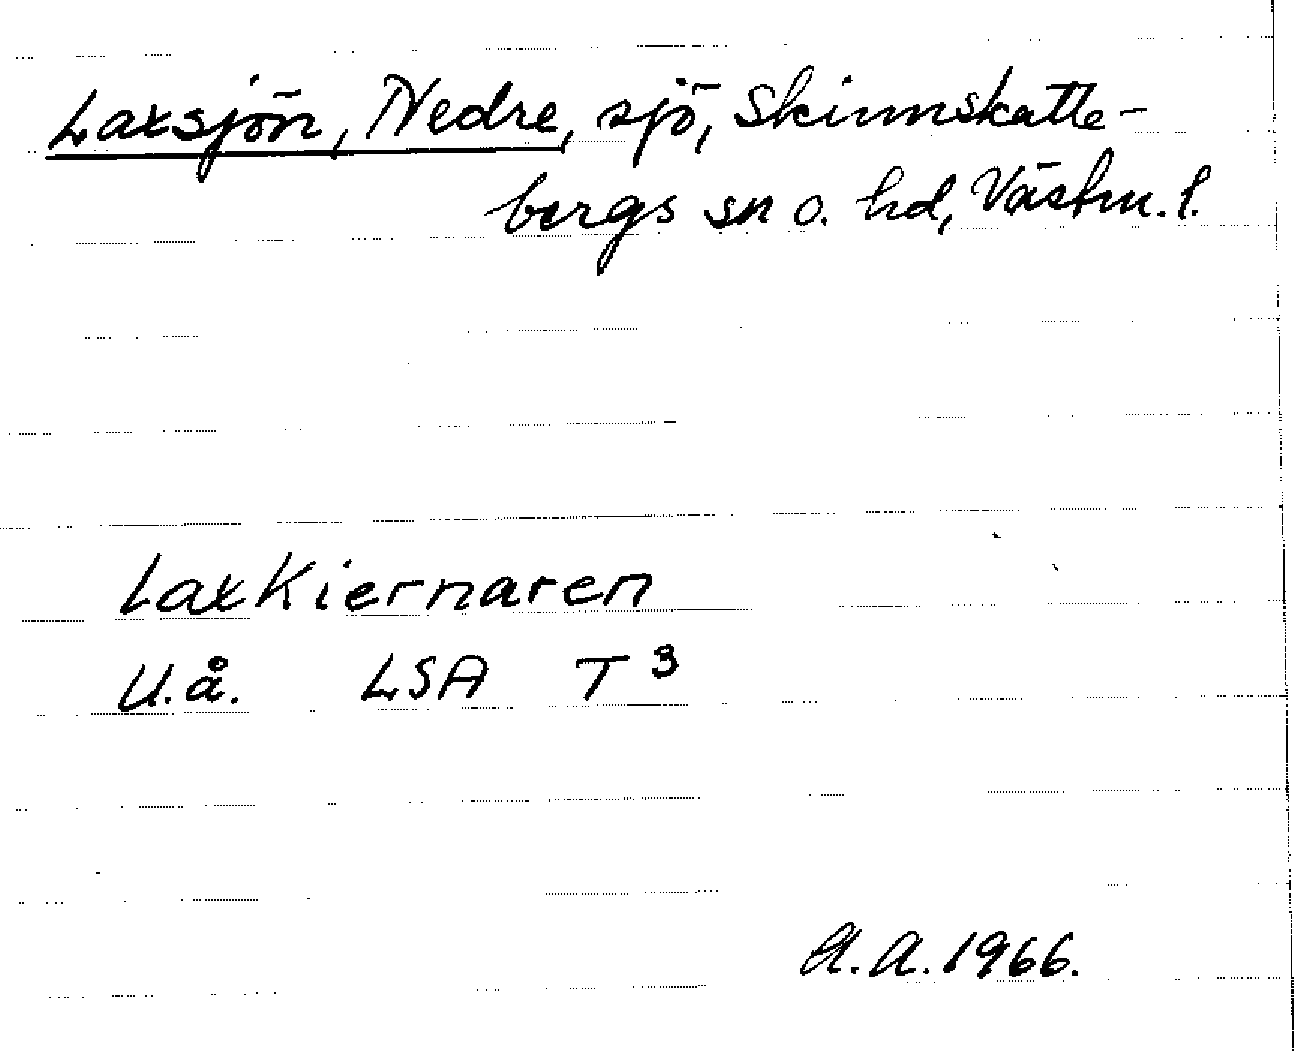 Laxsjön, Nedre, sjö, Skinnskatte-
bergs sn o. hd, Västm. l.
Laxkiernaren
U.å. LSA T 3
A.A. 1966.